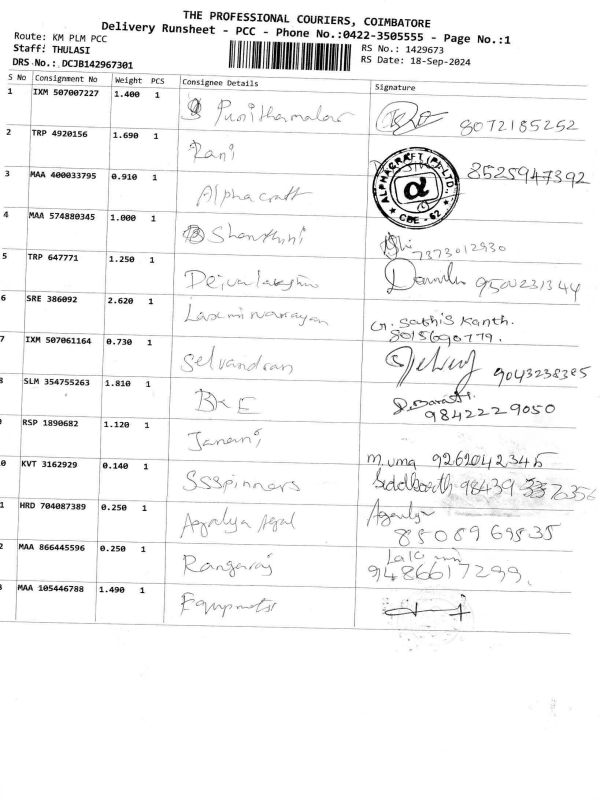 THE PROFESSIONAL COURIERS, COIMBATORE
Delivery Runsheet - PCC - Phone No.:0422-3505555 - Page No.:1
Route: KM PLM PCC
RS No.: 1429673
Staff: THULASI
RS Date: 18-Sep-2024
DRS No.: DCJB142967301
S No Consignment No Weight PCS Consignee Details Signature
1 IXM 507007227 1.400 1 Punithamalar 8072185252
2 TRP 4920156 1.690 1 Rani 8525947392
ALPHACRAFT (P) LTD. α CBE - 62
3 MAA 400033795 0.910 1 Alpha craft
4 MAA 574880345 1.000 1 Shanthini 7373012930
5 TRP 647771 1.250 1 9500231344
6 SRE 386092 2.620 1 Laxminarayan G. Sathis Kanth.
8015690779.
7 IXM 507061164 0.730 1 Selvandran 9043238385
8 SLM 354755263 1.810 1 9842229050
RSP 1890682 1.120 1 Janani M. uma 9262042345
0 KVT 3162929 0.140 1 SSspinners Siddharth 98439
1 HRD 704087389 0.250 1 8508969835
2 MAA 866445596 0.250 1 Rangaraj
9486617299.
3 MAA 105446788 1.490 1